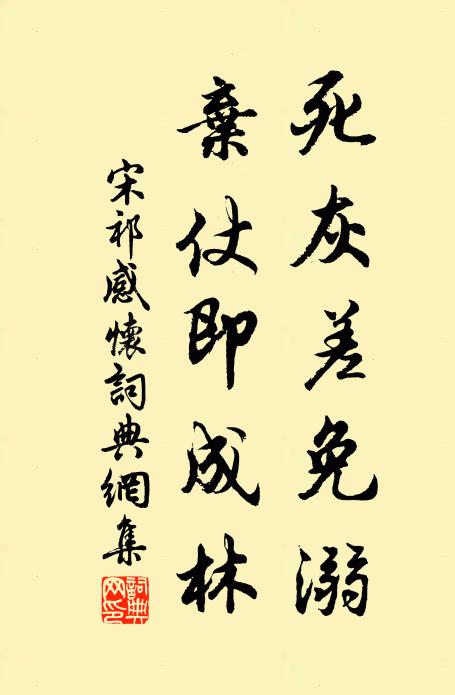 死灰差免溺
棄仗即成林
宋祁感懷詞典網集
詞典網印